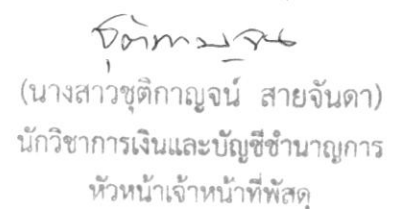 ชุติกาญจน์
(นางสาวชุติกาญจน์ สายจันดา)
นักวิชาการเงินและบัญชีชำนาญการ
หัวหน้าเจ้าหน้าที่พัสดุ